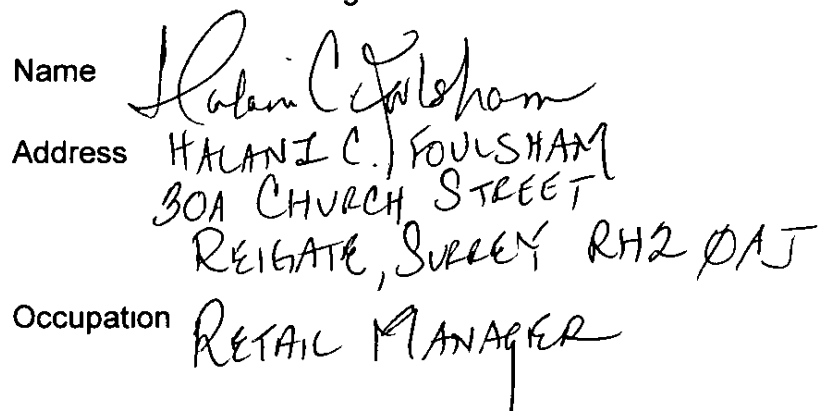 Name Halani C Foulsham
Address HALANI C. FOULSHAM
30A CHURCH STREET
REIGATE, SURREY RH2 0AJ
Occupation RETAIL MANAGER